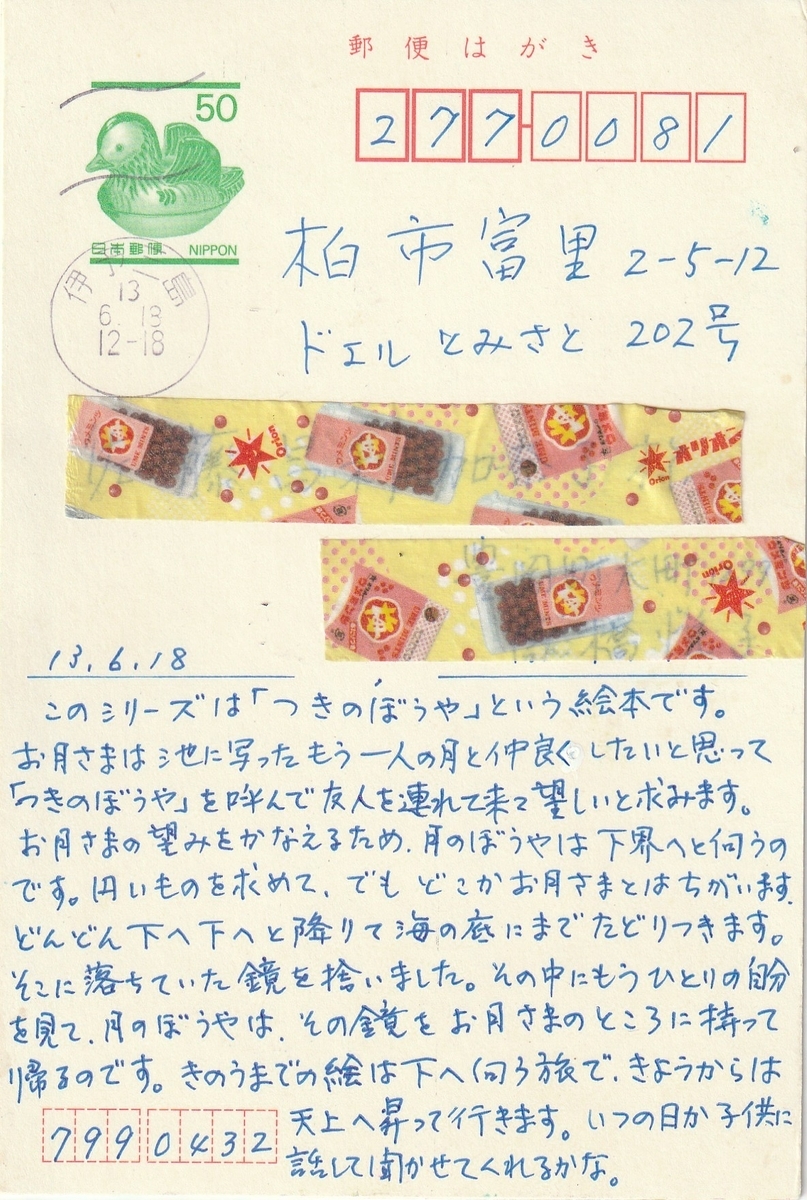 郵便はがき
50
日本郵便 NIPPON
277-0081
伊予三島
13
6.18
12-18
柏市富里 2-5-12
ドエルとみさと 202号
Orion
Orion
Orion
13.6.18
このシリーズは「つきのぼうや」という絵本です。
お月さまは池に写ったもう一人の月と仲良くしたいと思って
「つきのぼうや」を呼んで友人を連れて来て望しいと求みます。
お月さまの望みをかなえるため、月のぼうやは下界へと向うの
です。円いものを求めて、でもどこかお月さまとはちがいます、
どんどん下へ下へと降りて海の底にまでたどりつきます。
そこに落ちていた鏡を捨いました。その中にもうひとりの自分
を見て、月のぼうやは、その鏡をお月さまのところに持って
帰るのです。きのうまでの絵は下へ向う旅で、きょうからは
天上へ昇って行きます。いつの日か子供に
話して聞かせてくれるかな。
7990432